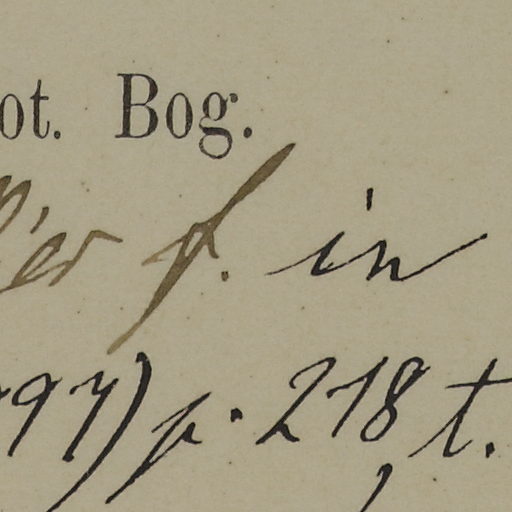 ot. Bog.
f. in
97) p. 218, t.